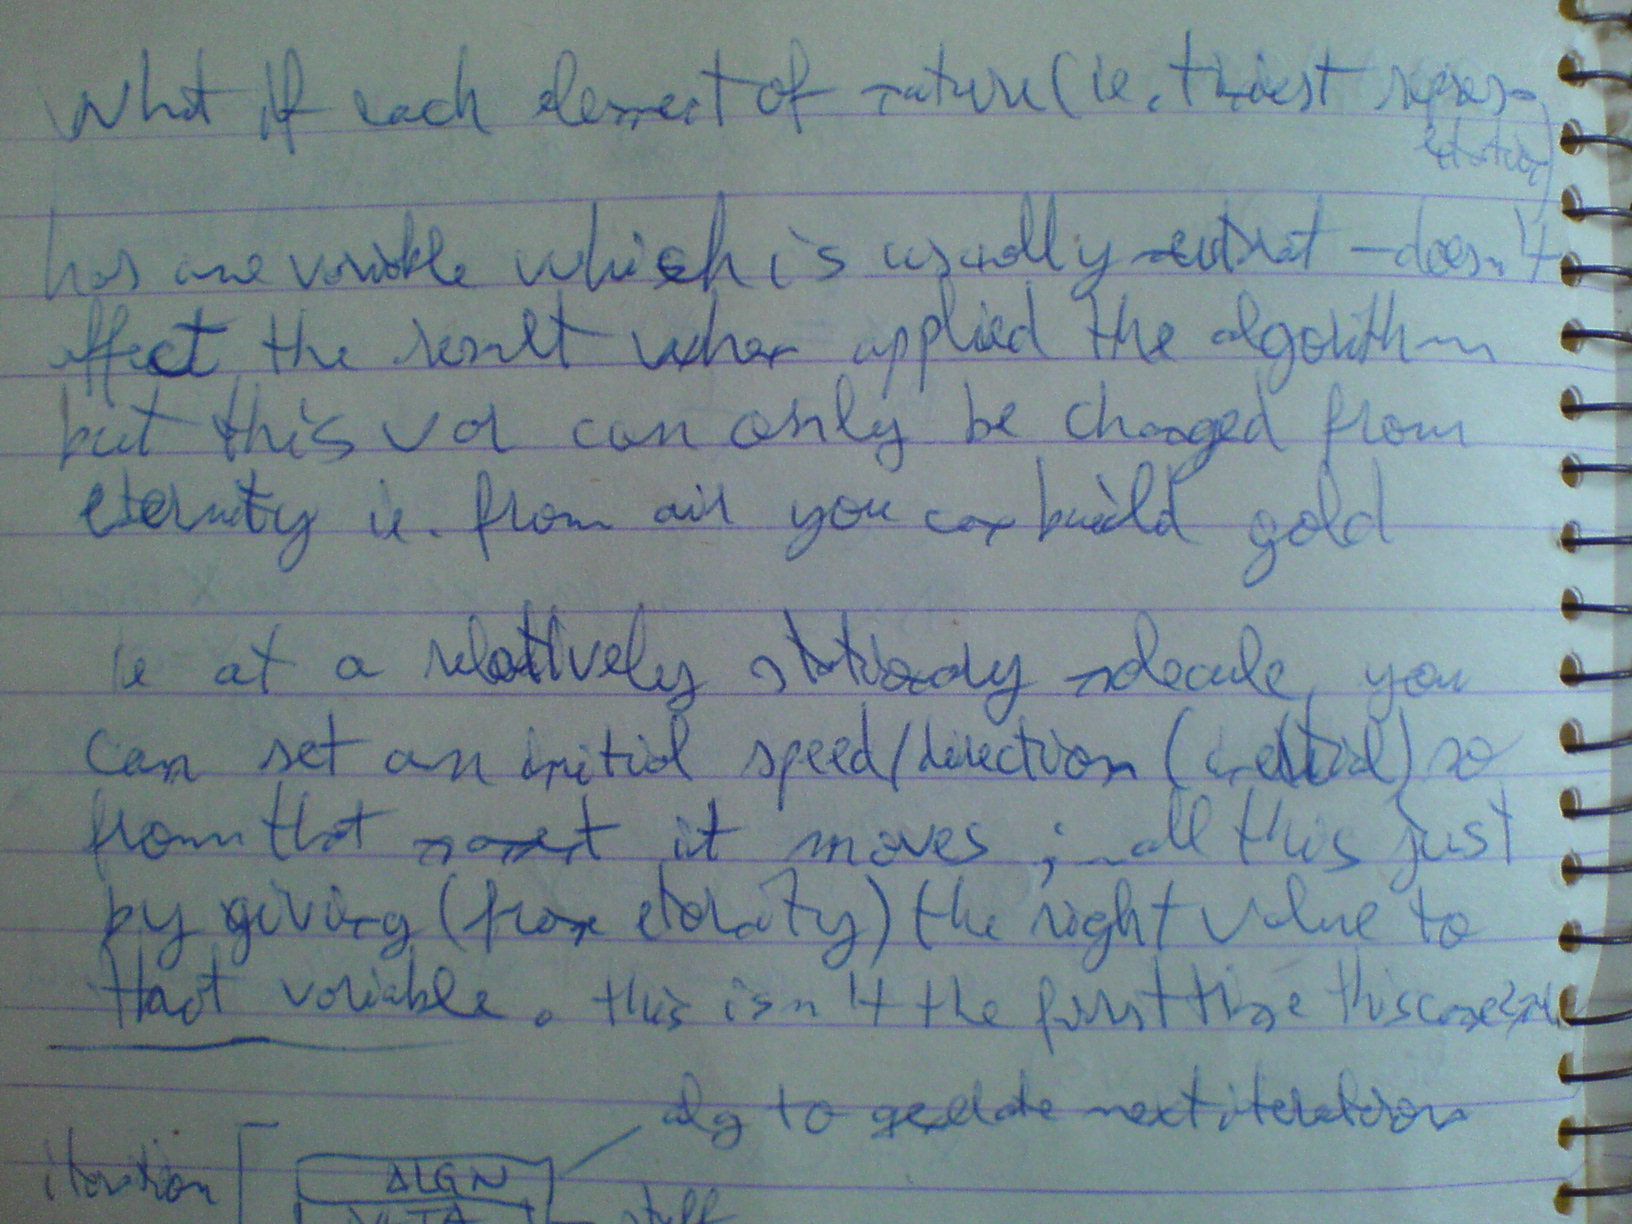 What if each element of nature (ie. tiniest repres-
entation)
has one variable which is usually extinct - doesn't
affect the result when applied the algorithm
but this var can only be changed from
eternity ie. from air you can build gold
ie at a relatively stationary molecule, you
can set an initial speed/direction (inertial) so
from that moment it moves ; all this just
by giving (from eternity) the right value to
that variable. this isn't the first time this
alg to generate next iteration
iteration
ALGN
DATA
stuff